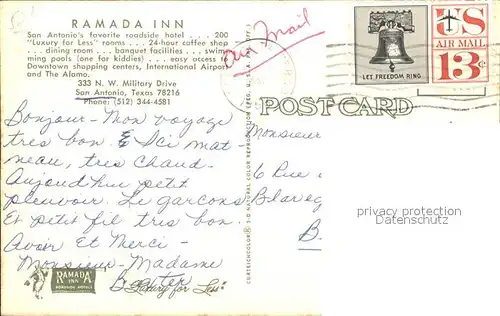 RAMADA INN
San Antonio's favorite roadside hotel . . . . 200
"Luxury for Less" rooms . . . . 24-hour coffee shop
. . . dining room . . . banquet facilities . . . swim-
ming pools (one for kiddies) . . . easy access to
Downtown shopping centers, International Airport
and The Alamo.
333 N. W. Military Drive
San Antonio, Texas 78216
Phone: (512) 344-4581
Air Mail
LET FREEDOM RING
US
AIR MAIL
13c
POST CARD
Bonjour - Mon voyage
tres bon. Ici mat
neau, tres chaud.
Aujourd'hui petit
pleuvoir. Le garcons
Et petit fil tres bon.
Avoir Et Merci -
Monsieur - Madame
Monsieur
6 Rue
B
privacy protection
RAMADA
INN
ROADSIDE HOTELS
"Luxury for Less"